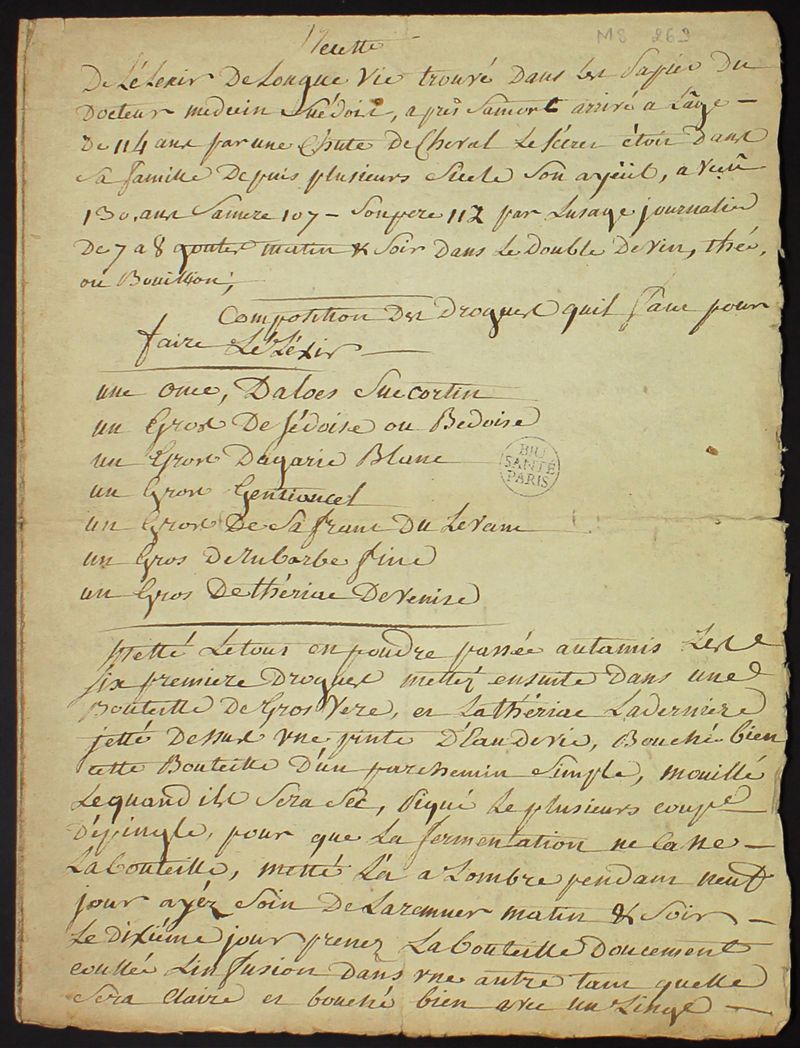 MS 269
Recette
De Lélexir De Longue Vie trouvé Dans les Papier Du
Docteur medecin Suédois, apres Samort arrivé a L'age —
De 114 ans par une Chute De Cheval Le sécret étoit Dans
Sa famille Depuis plusieurs Siecle Son ayëul, a vecû
130. ans Samere 107 — Sonpere 112 par Lusage journalié
De 7 a 8 goutes matin & Soir Dans Le Double De Vin, thée,
ou Bouillon;
Composition Des Drogues quil faut pour
faire Lélexir —
une once, Daloes Succotrin
un Gros De Sédoise ou Bedoise
un Gros Dagaric Blanc
un Gros Gentiancel
un Gros De Safrant Du Levant
un Gros De Rubarbe fine
un Gros De thériac De Venise
Metté Letout en poudre passée autamis Les
six premiere Drogues mettez ensuite Dans une
Bouteille De Gros Vere, et La thériac La derniere
jetté Dessus une pinte D'Eau De vie, Bouché bien
cette Bouteille D'un parchemin Simple, mouillé
Lequand ils Sera Sec, Piqué Le plusieurs coups
D'épingle, pour que La fermentation ne Casse —
La bouteille, metté La a Lombre pendant neuf
jour ayéz Soin De La remuer matin & Soir —
Le dixiéme jour prenez La bouteille Doucement
coullée Linfusion Dans une autre tant quelle
Sera Claire et bouché bien avec un Linge —
BIU
SANTÉ
PARIS